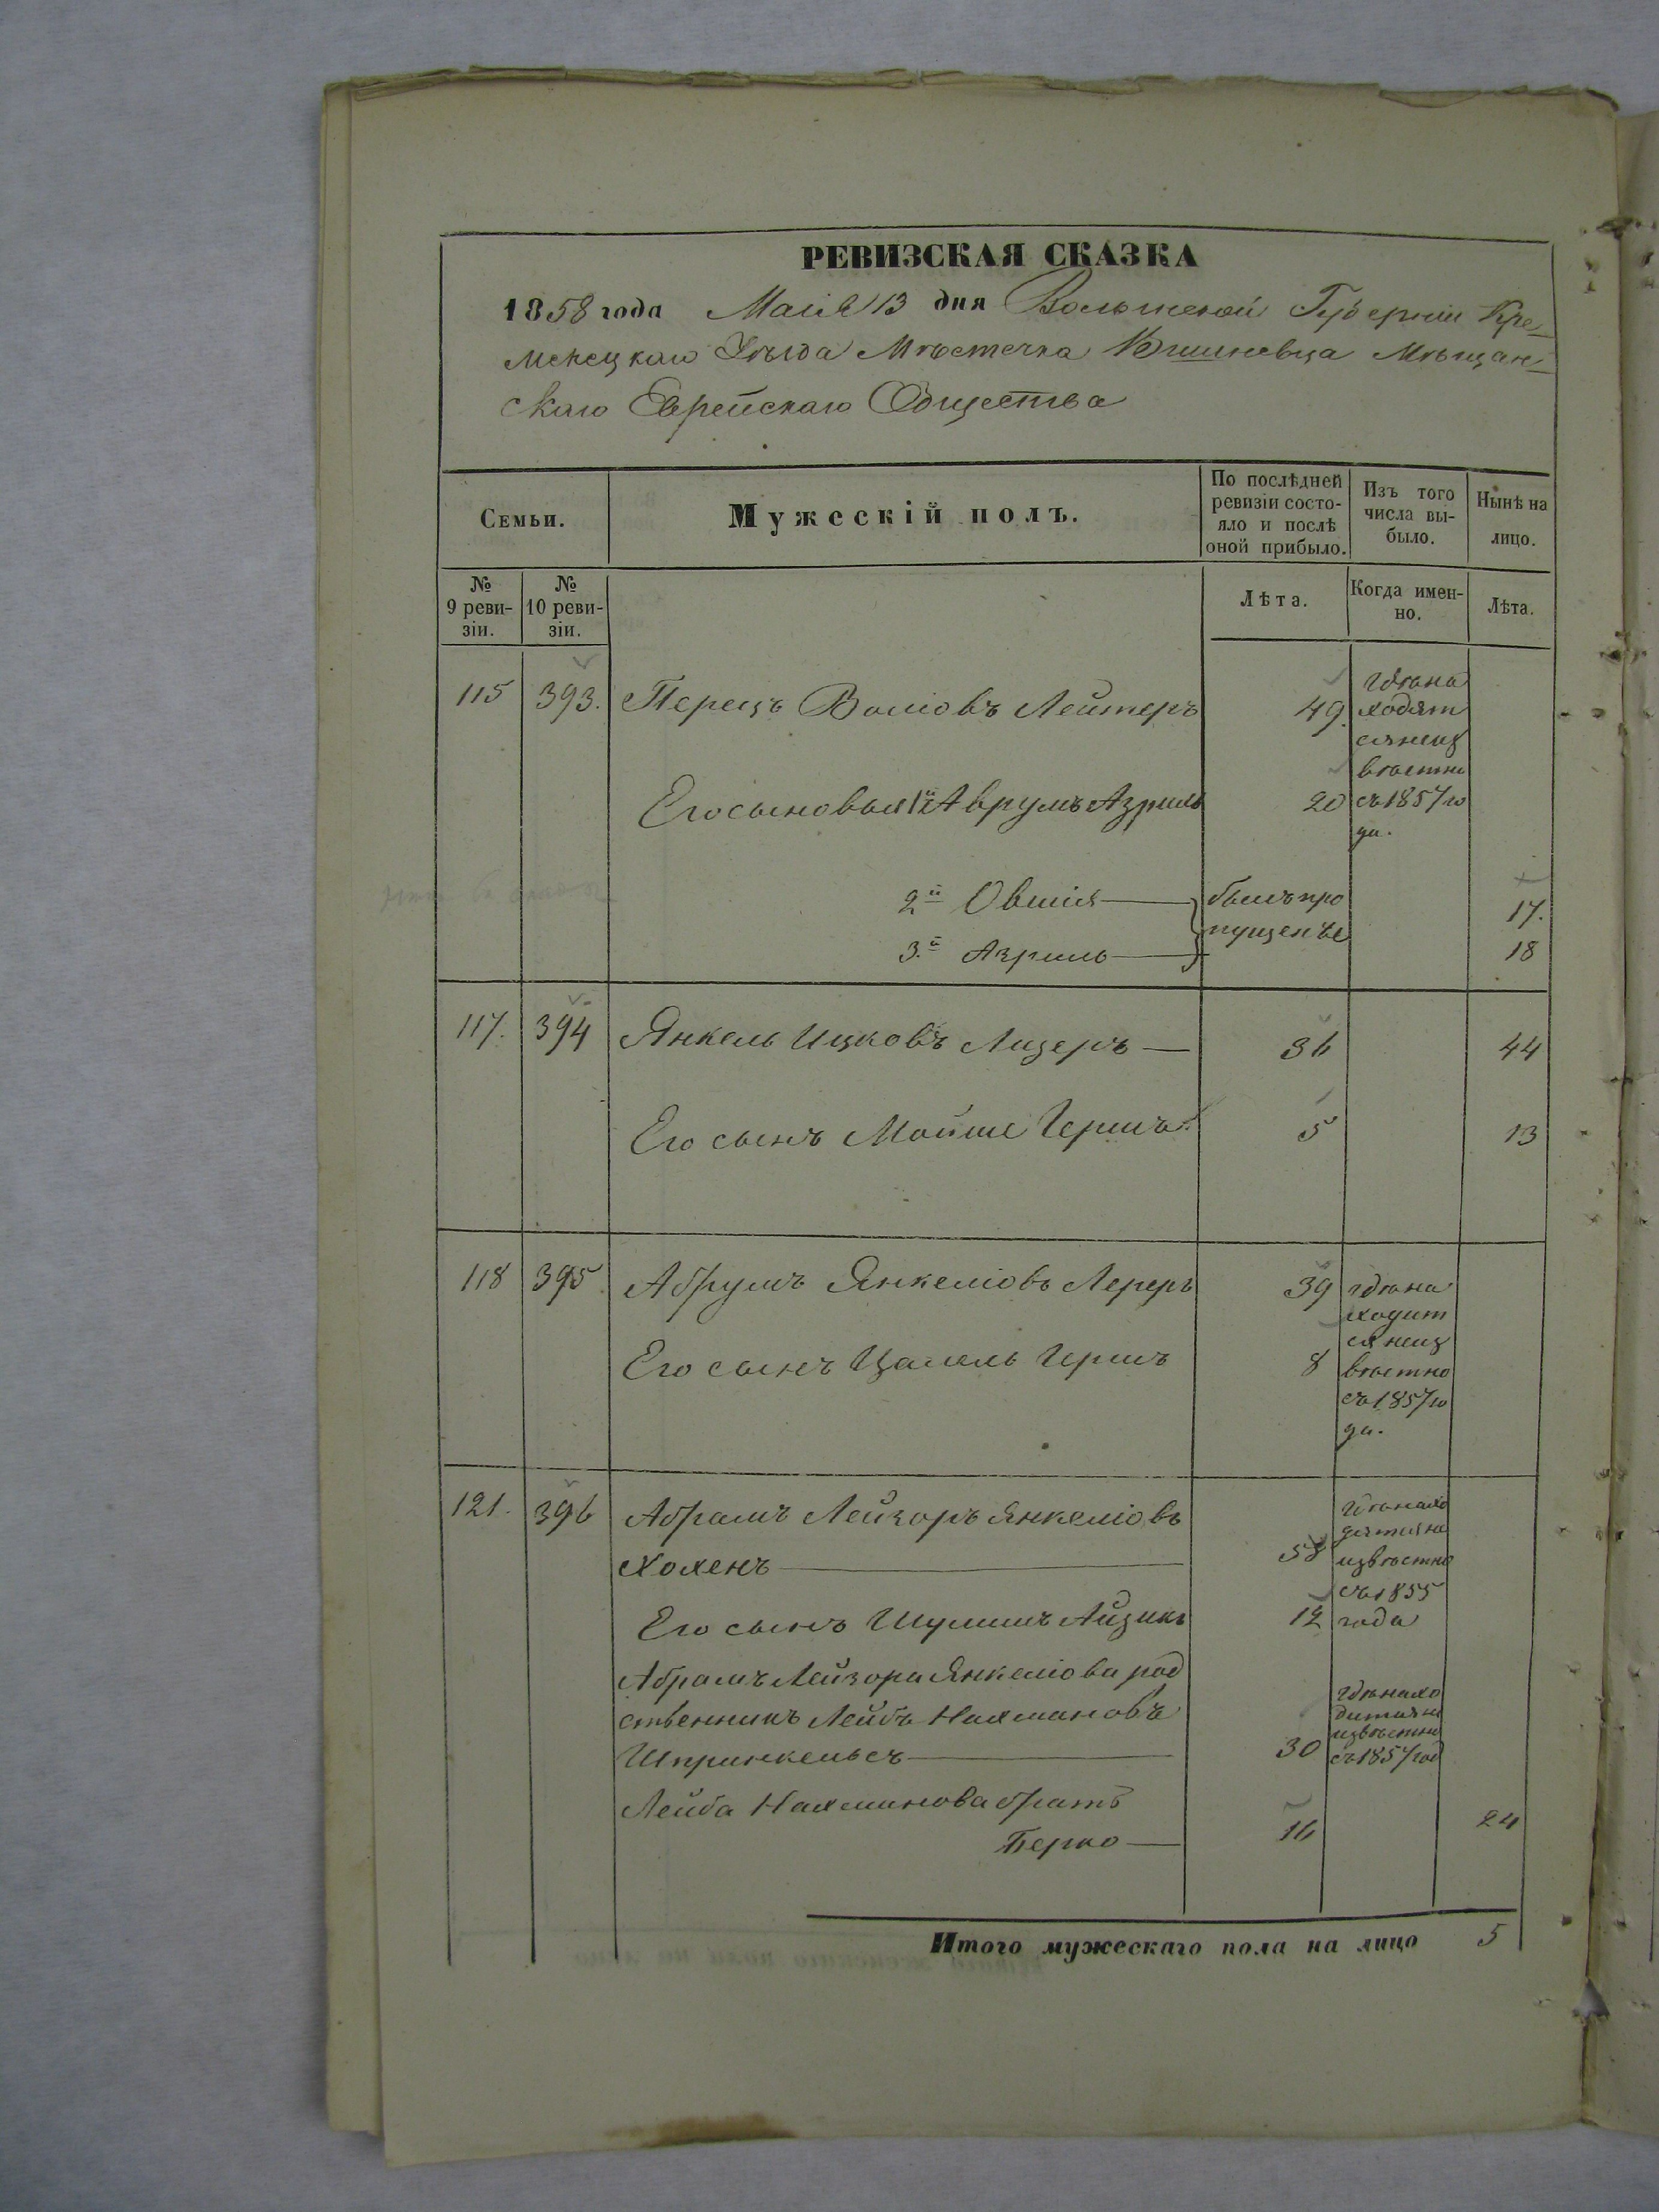 РЕВИЗСКАЯ СКАЗКА
1858 года Маія 13 дня Волынской Губерніи Кре-
менецкаго Уѣзда Мѣстечка Вишневца Мѣщан-
скаго Еврейскаго Общества
Семьи.
Мужескій полъ.
По послѣдней
ревизіи состо-
яло и послѣ
оной прибыло.
Изъ того
числа вы-
было.
Нынѣ на
лицо.
№
9 реви-
зіи.
№
10 реви-
зіи.
Лѣта.
Когда имен-
но.
Лѣта.
115 393. Перецъ Волковъ Лейтеръ 49
гдѣ на
ходят
ся неиз
вѣстно
съ 1857 го
да.
Его сыновья 1й Аврумъ Азриль 20
2й Овшія 17.
3.й Азриль 18
былъ про
пущенъ
117. 394 Янкель Ицковъ Лизеръ 36 44
Его сынъ Мойше Гершъ 5 13
118 395 Абрумъ Янкеліовъ Лереръ 39
Его сынъ Цалель Гершъ 8
гдѣ на
ходит
ся неиз
вѣстно
съ 1857 го
да.
121. 396 Абрамъ Лейзоръ Янкеліовъ
Холенъ 58
гдѣ нахо
дятся не
извѣстно
съ 1855
года
Его сынъ Шулимъ Айзикъ 12
Абрамъ Лейзора Янкеліова род
ственникъ Лейбъ Нахмановъ
Шпринкельсъ 30
гдѣ нахо
дится не
извѣстно
съ 1857 год
Лейба Нахманова братъ
Берко 16 24
Итого мужескаго пола на лицо 5